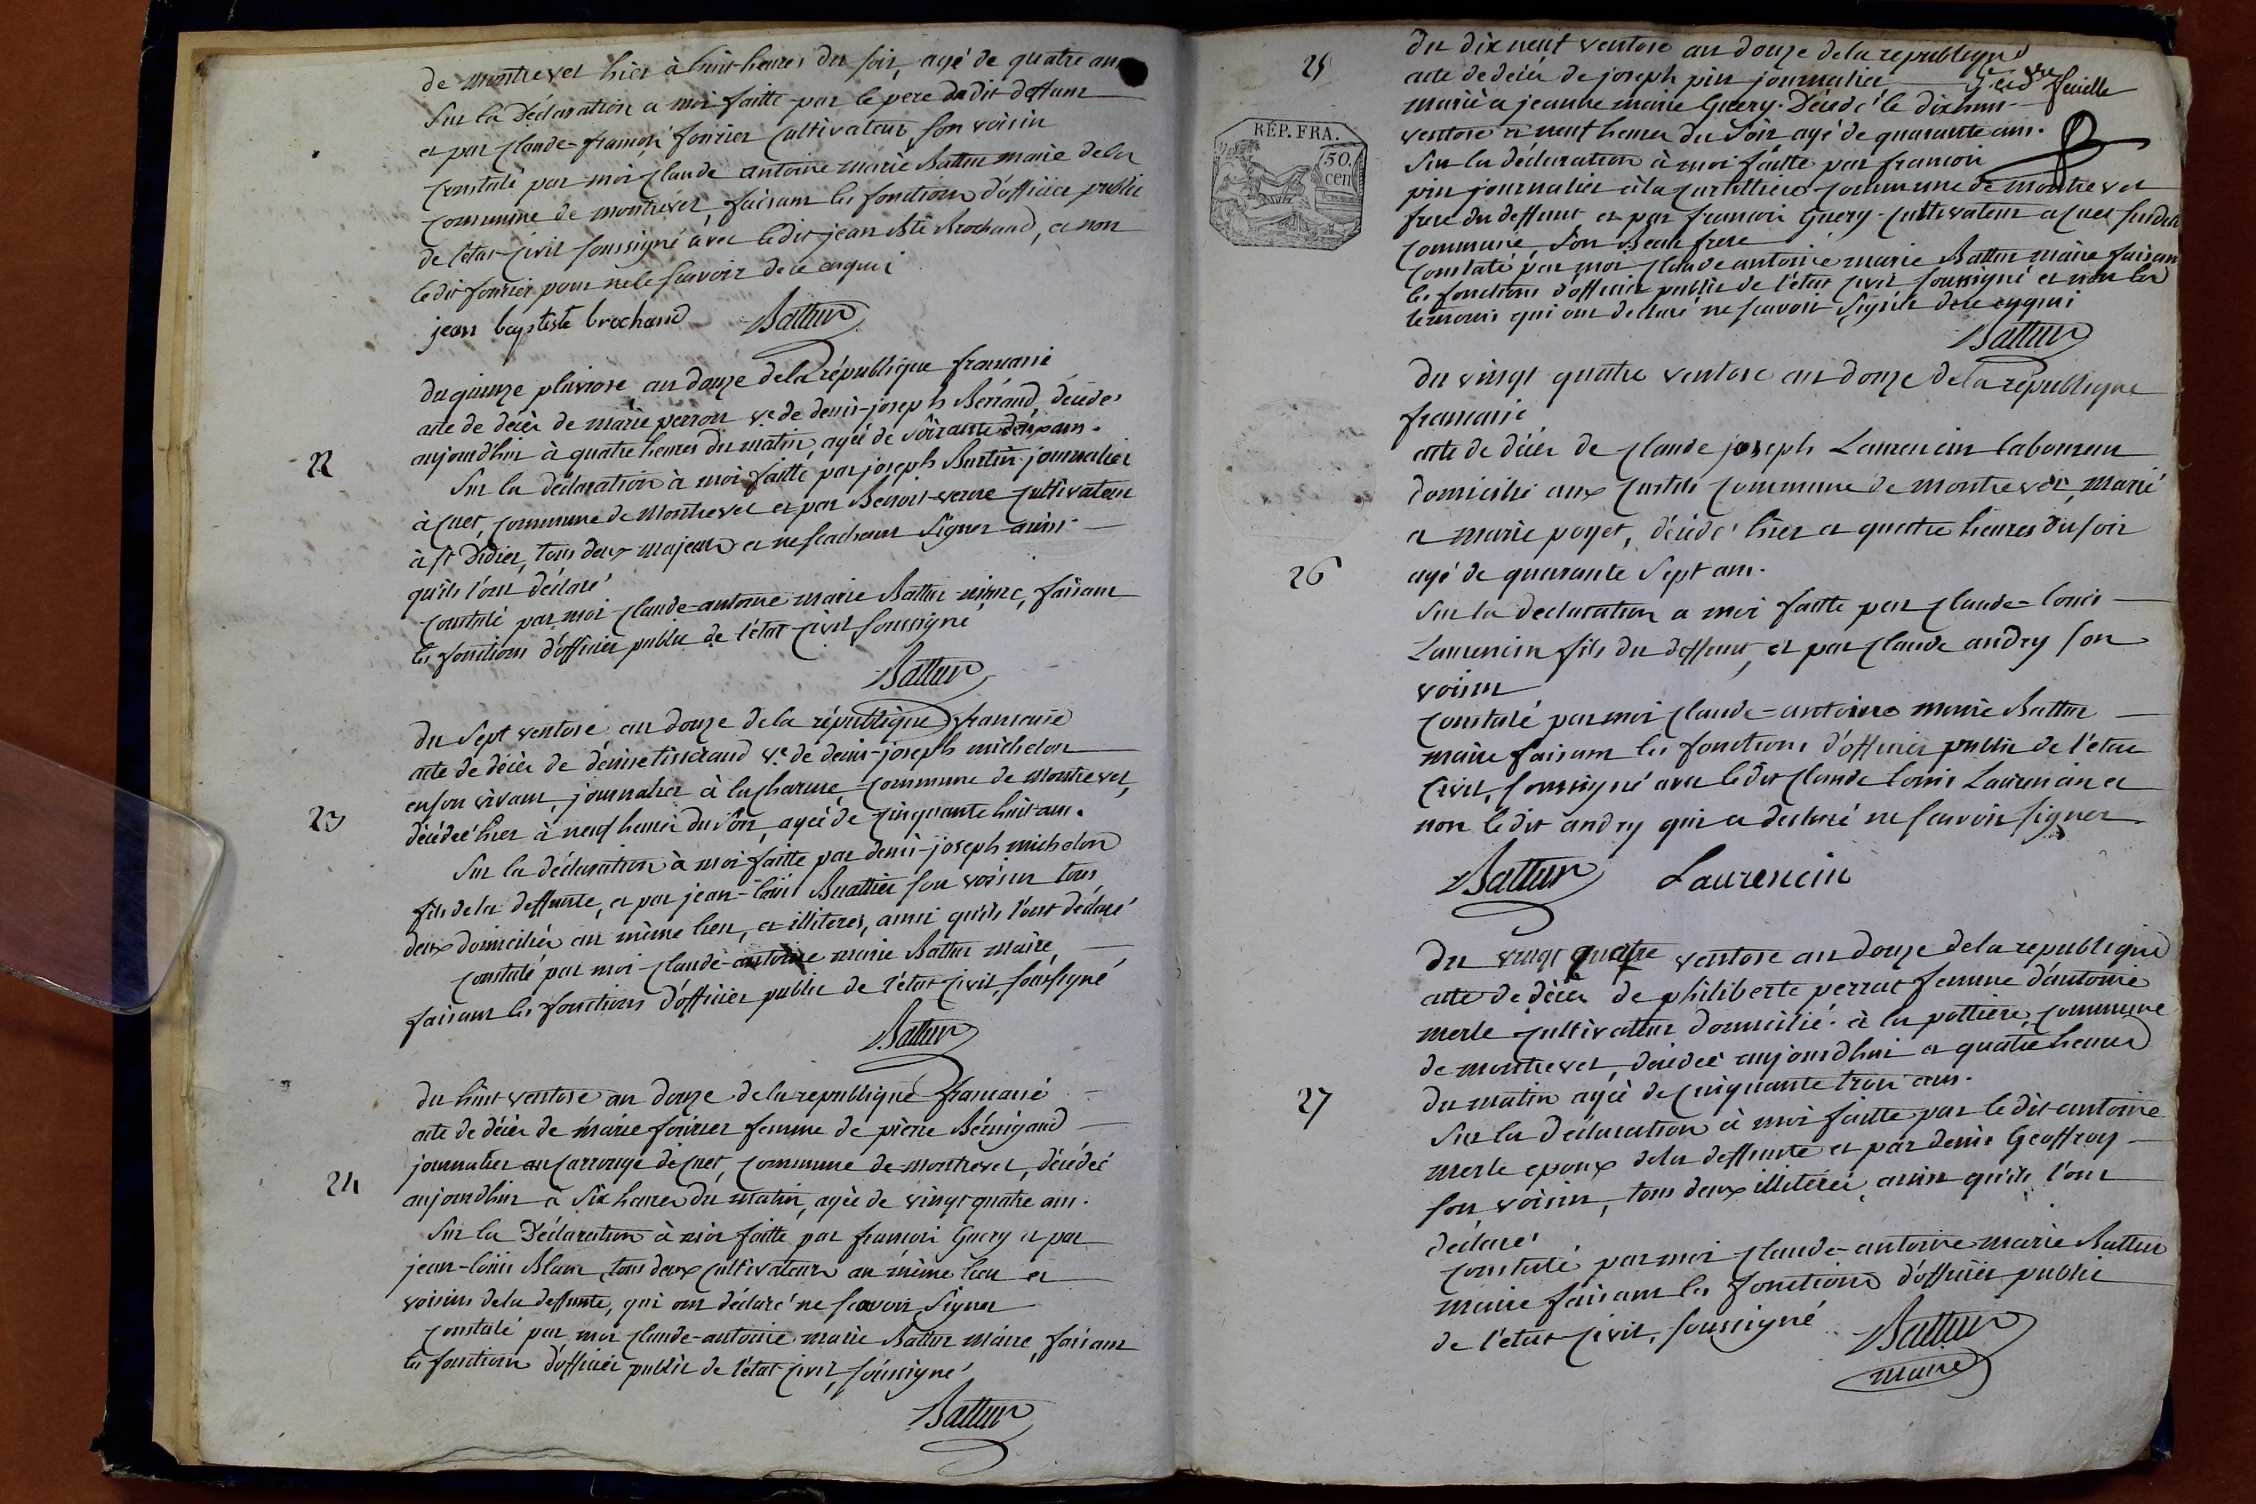 de montrevel hier à huit heures du soir, agé de quatre ans
Sur la Déclaration a moi faitte par le pere du dit deffunt
et par Claude-françois fourier Cultivateur son voisin
Constaté par moi Claude antoine marie Battur maire de la
Commune de montrevel, faisant les fonctions d'officier public
de l'état-civil soussigné avec le dit jean Bte Brochand, et non
le dit fourier pour ne le scavoir de ce enquis
jean baptiste brochand Battur
du quinze pluviose an douze de la république francaise
acte de décès de marie perron ve de denis-joseph Bérraud, décédée
aujourd'hui à quatre heures du matin, agée de soixante ans.
22
Sur la déclaration à moi faitte par joseph Burtin journalier
à Cuet, Commune de Montrevel et par Benoit-verne Cultivateur
à st Didier, tous deux majeurs et ne scachant signer ainsi
qu'ils l'ont déclaré
Constaté par moi Claude-antoine marie Battur maire, faisant
les fonctions d'officier public de l'état civil soussigné
Battur
du Sept ventose an douze de la république francaise
acte de décès de denise tisseraud ve de denis-joseph michelon
en son vivant, journalier à la Charme, Commune de Montrevel,
23
décédée hier à neuf heures du soir, agée de Cinquante huit ans.
Sur la déclaration à moi faitte par denis-joseph michelon
fils de la deffunte, et par jean-louis Buattier son voisin tous
deux domiciliés au même lieu, et illiteres, ainsi qu'ils l'ont déclaré
Constaté par moi Claude-antoine marie Battur maire
faisant les fonctions d'officier public de l'état civil, soussigné
Battur
du huit ventose an douze de la republique francaise
acte de décès de marie fourier femme de pierre Bérrigaud
journalier au Carrouge de Cuet, Commune de Montrevel, décédée
24
aujourdhui à Six heures du matin, agée de vingt quatre ans.
Sur la Déclaration à moi faitte par francois Guery et par
jean-louis Blanc, tous deux Cultivateurs au même lieu et
voisins de la deffunte, qui ont déclaré ne scavoir Signer
Constaté par moi Claude-antoine marie Battur maire, faisant
les fonctions d'officier public de l'état civil, soussigné
Battur
25
du dix neuf ventose an douze de la republique
acte de décès de joseph pin journalier
feuille
marié a jeanne marie Guery. Décédé le dix huit
RÉP. FRA.
50. cen
ventose a neuf heures du Soir agé de quarante ans.
Sur la déclaration à moi faitte par francois
pin journalier à la Commune de montrevel
frere du deffunt et par francois Guery Cultivateur a Cuet susdite
Commune, Son Beau frere
Constaté par moi Claude antoine marie Battur maire faisant
les fonctions d'officier public de l'état civil soussigné et non les
temoins qui ont declaré ne scavoir Signer de ce enquis
Battur
du vingt quatre ventose an douze de la republique
francaise
acte de décès de Claude joseph Laurencin laboureur
domicilié aux Commune de montrevel, marié
a marie poyet, décédé hier a quatre heures du soir
26
agé de quarante Sept ans.
Sur la declaration a moi faitte par Claude-louis
Laurencin fils du deffunt, et par Claude andry son
voisin
Constaté par moi Claude-antoine marie Battur
maire faisant les fonctions d'officier public de l'état
Civil, soussigné avec le dit Claude louis Laurencin et
non le dit andry qui a declaré ne scavoir signer
Battur Laurencin
du vingt quatre ventose an douze de la republique
acte de décès de philiberte perrat femme d'antoine
merle Cultivateur domicilié à la pottiere, Commune
de montrevel, décédée aujourdhui a quatre heures
27
du matin agée de Cinquante trois ans.
Sur la declaration à moi faitte par le dit antoine
merle epoux de la deffunte et par denis Geoffroy
son voisin, tous deux illiterés, ainsi qu'ils l'ont
déclaré
Constaté par moi Claude-antoine marie Battur
maire faisant les fonctions d'officier public
de l'état civil, soussigné
Battur
maire